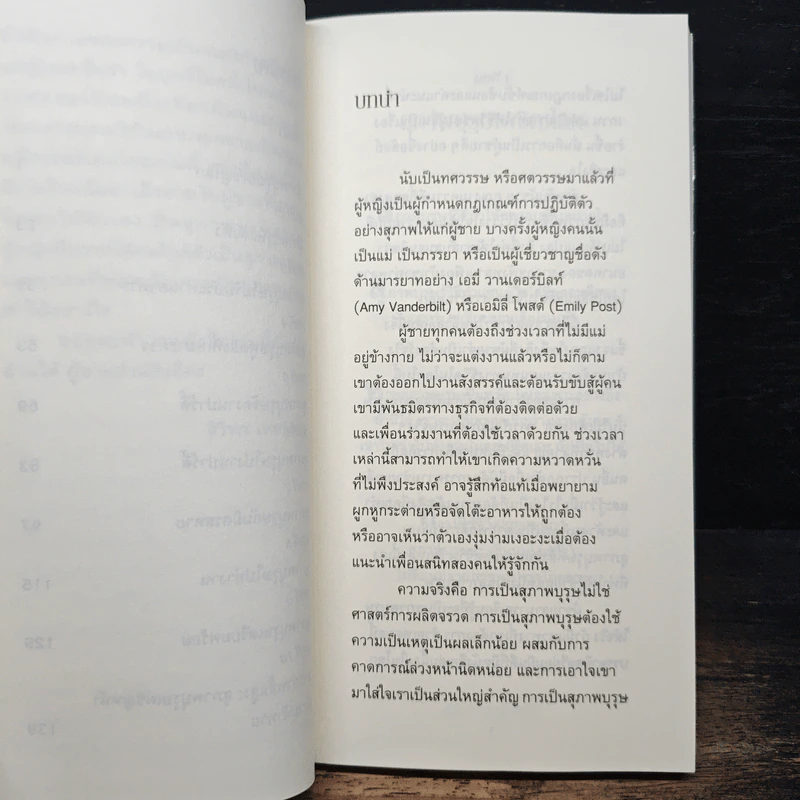 บทนำ
นับเป็นทศวรรษ หรือศตวรรษมาแล้วที่
ผู้หญิงเป็นผู้กำหนดกฎเกณฑ์การปฏิบัติตัว
อย่างสุภาพให้แก่ผู้ชาย บางครั้งผู้หญิงคนนั้น
เป็นแม่ เป็นภรรยา หรือเป็นผู้เชี่ยวชาญชื่อดัง
ด้านมารยาทอย่าง เอมี่ วานเดอร์บิลท์
(Amy Vanderbilt) หรือเอมิลี่ โพสต์ (Emily Post)
ผู้ชายทุกคนต้องถึงช่วงเวลาที่ไม่มีแม่
อยู่ข้างกาย ไม่ว่าจะแต่งงานแล้วหรือไม่ก็ตาม
เขาต้องออกไปงานสังสรรค์และต้อนรับขับสู้ผู้คน
เขามีพันธมิตรทางธุรกิจที่ต้องติดต่อด้วย
และเพื่อนร่วมงานที่ต้องใช้เวลาด้วยกัน ช่วงเวลา
เหล่านี้สามารถทำให้เขาเกิดความหวาดหวั่น
ที่ไม่พึงประสงค์ อาจรู้สึกท้อแท้เมื่อพยายาม
ผูกหูกระต่ายหรือจัดโต๊ะอาหารให้ถูกต้อง
หรืออาจเห็นว่าตัวเองงุ่มง่ามเงอะงะเมื่อต้อง
แนะนำเพื่อนสนิทสองคนให้รู้จักกัน
ความจริงคือ การเป็นสุภาพบุรุษไม่ใช่
ศาสตร์การผลิตจรวด การเป็นสุภาพบุรุษต้องใช้
ความเป็นเหตุเป็นผลเล็กน้อย ผสมกับการ
คาดการณ์ล่วงหน้านิดหน่อย และการเอาใจเขา
มาใส่ใจเราเป็นส่วนใหญ่สำคัญ การเป็นสุภาพบุรุษ